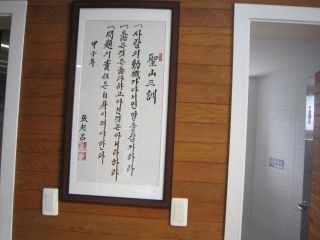 聖山三訓
一. 사랑의 動機가 아니면 말을 삼가하라
一. 옳은 것은 옳다 하고 아닌 것은 아니다 하라
一. 問題의 責任은 自身이 져야 한다
甲子年